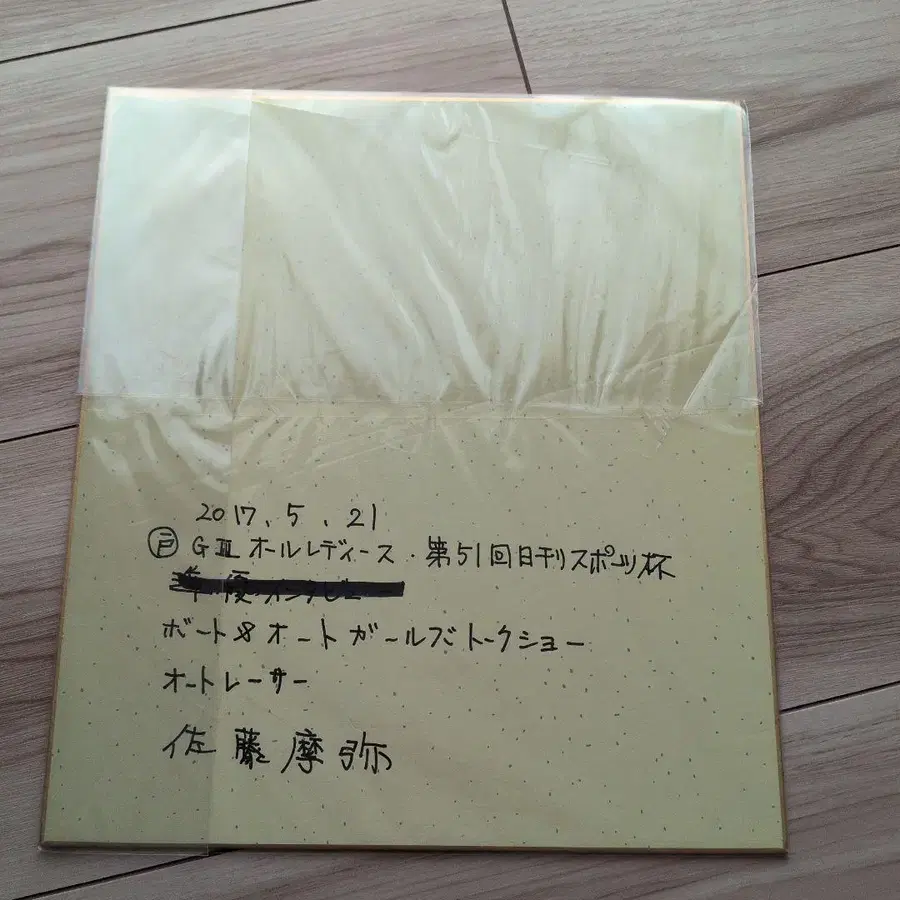 2017.5.21
㊁ GⅢ オールレディース・第51回日刊スポーツ杯
準優インタビュー
ボート&オートガールズトークショー
オートレーサー
佐藤摩弥